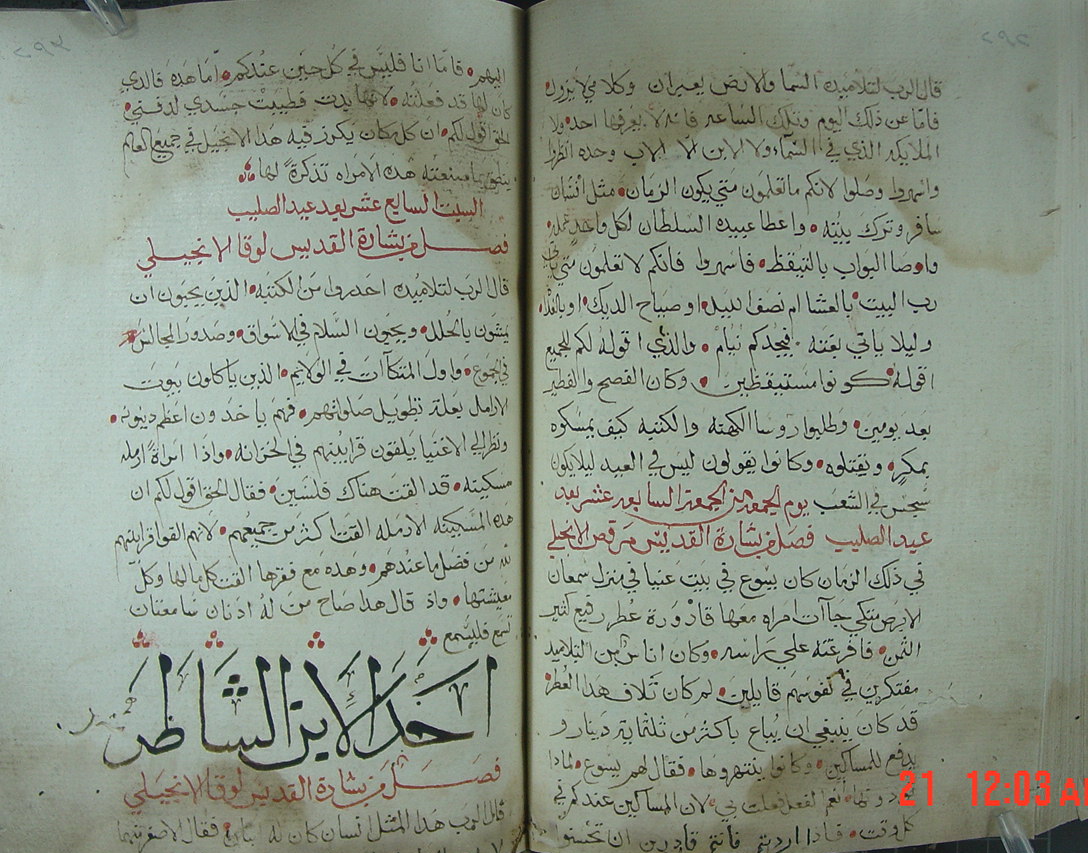 قال الرب لتلاميذه السما والارض يعبران وكلامي لا يزول
فاما عن ذلك اليوم وتلك الساعه فانه لا يعرفها احد ولا
الملايكه الذي في السماء ولا الابن الا الاب وحده انظروا
واسهروا وصلوا لانكم ما تعلمون متي يكون الزمان مثل انسان
سافر وترك بيته واعطا عبيده السلطان لكل واحد عمله
واوصا البواب بالتيقظ فاسهروا فانكم لا تعلمون متي ياتي
رب البيت بالعشا ام نصف الليل او صياح الديك او بالغداه
وليلا ياتي بغته فيجدكم نيام والذي اقوله لكم للجميع
اقوله كونوا مستيقظين وكان الفصح والفطير
بعد يومين وطلبوا روسا الكهنه والكتبه كيف يمسكوه
بمكر ويقتلوه وكانوا يقولون ليس في العيد ليلا يكون
سجس في الشعب يوم الجمعه من الجمعة السابعه عشر بعد
عيد الصليب فصل من بشارة القديس مرقص الانجيلي
في ذلك الزمان كان يسوع في بيت عنيا في منزل سمعان
الابرص متكي جاآت امراه معها قارورة عطر رفيع كثير
الثمن فافرغته علي راسه وكان اناس من التلاميد
مفتكرين في نفوسهم قايلين لم كان تلاف هذا العطر
قد كان ينبغي ان يباع باكثر من ثلثماية دينار و
يدفع للمساكين وكانوا ينتهروها فقال لهم يسوع لماذا
لان المساكين عندكم في
كل وقت فاذا اردتم فانتم قادرين ان تحسنوا
اليهم فاما انا فليس في كل حين عندكم اما هذه فالذي
كان لها قد فعلته لانها بدت فطيبت جسدي لدفني
الحق اقول لكم ان كل مكان يكرز فيه هذا الانجيل في جميع العالم
ينطق بما صنعته هذه الامراه تذكرة لها
السبت السابع عشر بعد عيد الصليب
فصل من بشارة القديس لوقا الانجيلي
قال الرب لتلاميذه احدروا من الكتبه الذين يحبون ان
يمشون بالحلل ويحبون السلام في الاسواق وصدور المجالس
في الجموع واول المتكآت في الولايم الذين ياكلون بيوت
الارامل بعلة تطويل صلواتهم فهم ياخدون اعظم دينونه
ونظر الي الاغنيا يلقون قرابينهم في الخزانه واذا امراة ارمله
مسكينه قد القت هناك فلسين فقال الحق اقول لكم ان
هذه المسكينه الارمله القت اكثر من جميعهم لانهم القوا قرابينهم
لله من فضل ما عندهم وهذه مع فقرها القت كل مالها وكل
معيشتها واذ قال هدا صاح من له ادنان سامعتان
تسمع فليسمع
احد الابن الشاطر
فصل من بشارة القديس لوقا الانجيلي
قال الرب هدا المثل انسان كان له ابنان فقال الاصغر منهما
21 12:03 AM